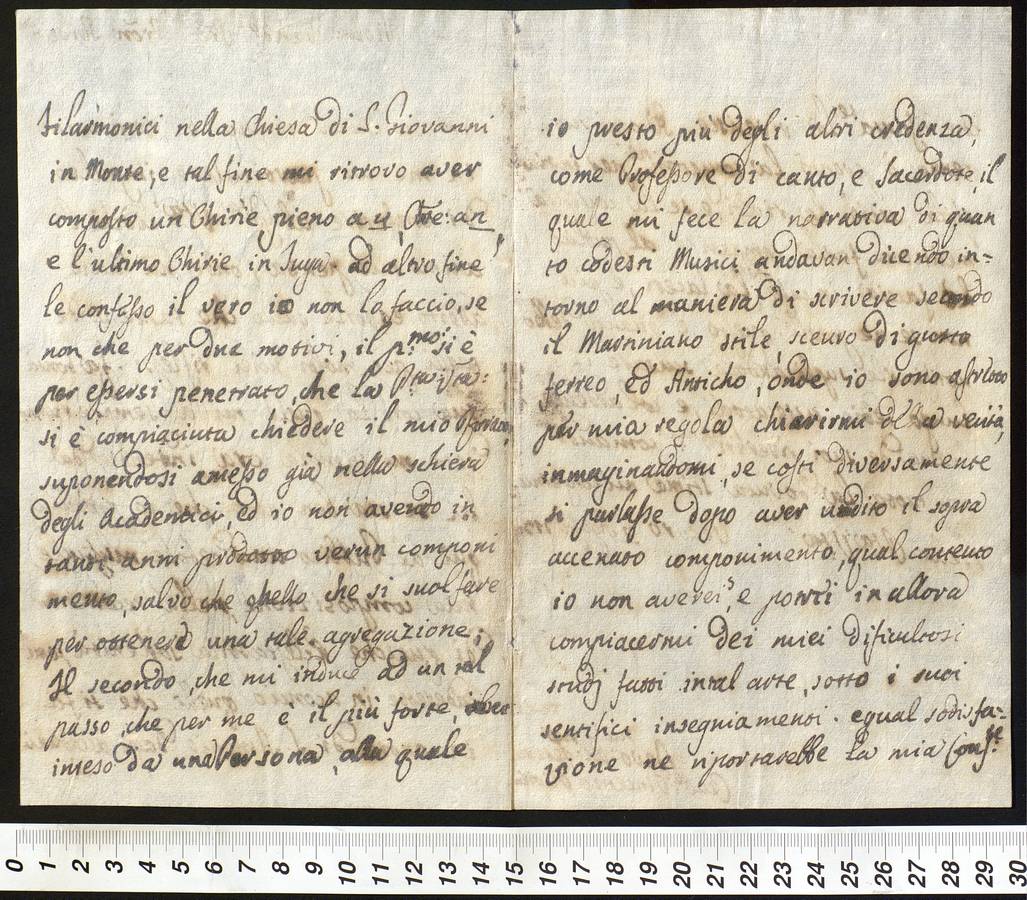 Filarmonici nella Chiesa di S. Giovanni
in Monte, e tal fine mi ritrovo aver
composto un Chirie pieno a 4
e l'ultimo Chirie in Fuga. ad altro fine
le confesso il vero io non lo faccio, se
non che per due motivi, il p.mo si è
per essersi penetrato, che la
si è compiaciuta chiedere il mio
suponendosi amesso già nella schiera
degli Academici, ed io non avendo in
tanti anni prodotto verun componi
mento, salvo che quello che si suol fare
per ottenere una tale agregazione;
Il secondo, che mi induce ad un tal
passo, che per me è il più forte,
inteso da una Persona, alla quale
io presto più degli altri credenza,
come Professore di canto, e Sacerdote, il
quale mi fece la narrativa di quan
to codesti Musici andavan dicendo in=
torno al maniera di scrivere secondo
il Martiniano stile, scevro di gusto
ferreo, ed Anticho, onde io sono astretto
per mia regola chiarirmi della verità,
inmaginandomi, se costì diversamente
si parlasse dopo aver udito il sopra
accenato componimento, qual contento
io non averei, e potrei in allora
compiacermi dei miei dificultosi
studj fatti intal arte, sotto i suoi
sentifici insegniamenti. egual sodisfa=
zione ne riportarebbe la mia